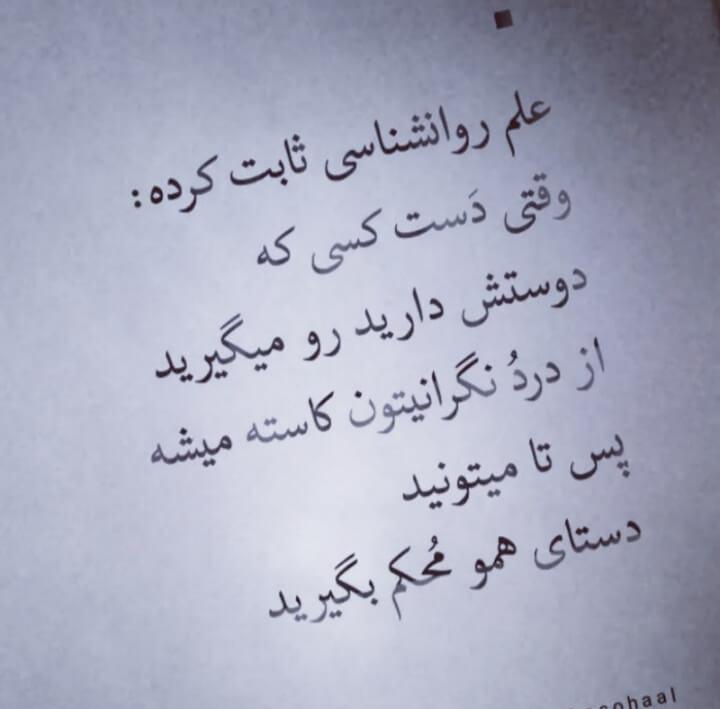 علم روانشناسی ثابت کرده:
وقتی دَست کسی که
دوستش دارید رو میگیرید
از دردُ نگرانیتون کاسته میشه
پس تا میتونید
دستای همو مُحکم بگیرید